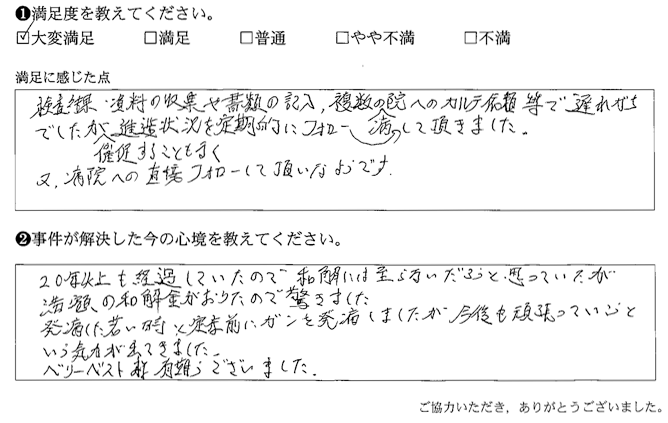 ❶満足度を教えてください。
☑大変満足 □満足 □普通 □やや不満 □不満
満足に感じた点
検査結果・資料の収集や書類の記入、複数の院へのカルテ依頼等で遅れがち
でしたが進捗状況を定期的にフォロー 病 して頂きました。
催促することもなく
又、病院への直接フォローして頂いた
❷事件が解決した今の心境を教えてください。
20年以上も経過していたので和解には至らないだろうと思っていたが
満額の和解金がおりたので驚きました
発病した若い時と定年前にガンを発病しましたが今後も頑張っていこうと
いう気力が出てきました。
ベリーベスト様有難うございました。
ご協力いただき、ありがとうございました。